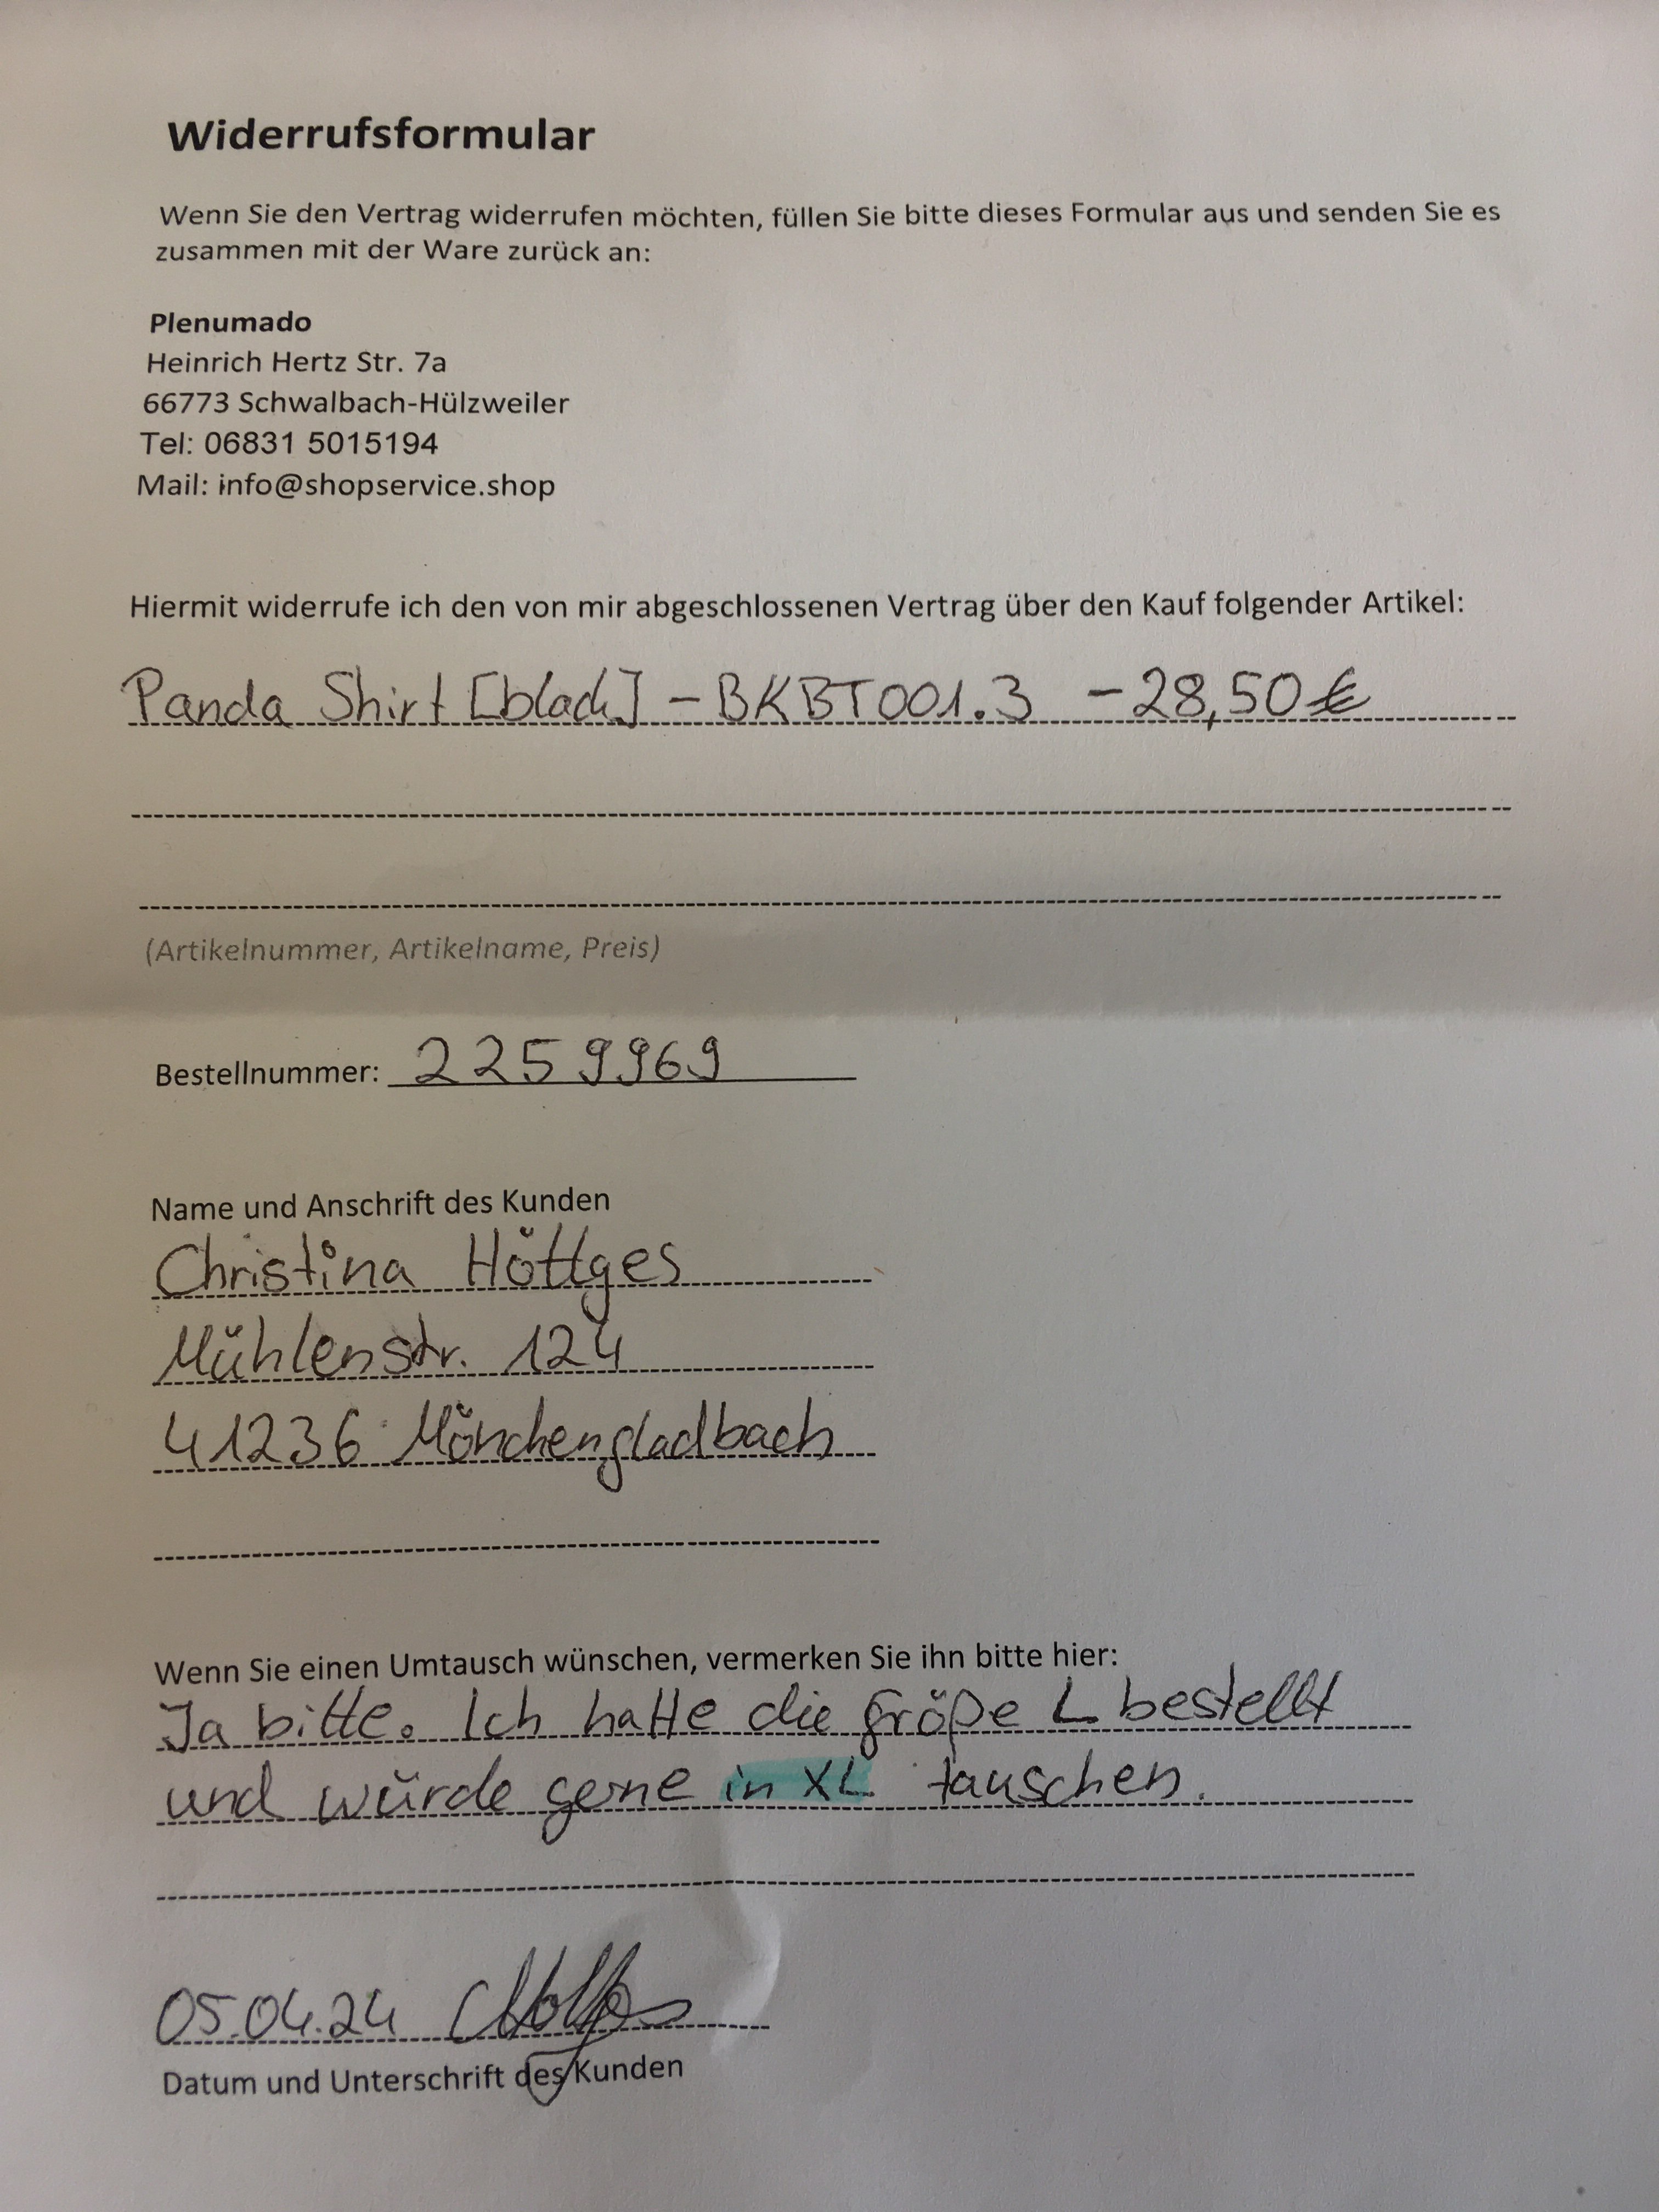 Widerrufsformular
Wenn Sie den Vertrag widerrufen möchten, füllen Sie bitte dieses Formular aus und senden Sie es
zusammen mit der Ware zurück an:
Plenumado
Heinrich Hertz Str. 7a
66773 Schwalbach-Hülzweiler
Tel: 06831 5015194
Mail: info@shopservice.shop
Hiermit widerrufe ich den von mir abgeschlossenen Vertrag über den Kauf folgender Artikel:
Panda Shirt [black] - BKBT001.3 - 28,50€
(Artikelnummer, Artikelname, Preis)
Bestellnummer: 2259969
Name und Anschrift des Kunden
Christina Höttges
Mühlenstr. 124
41236 Mönchengladbach
Wenn Sie einen Umtausch wünschen, vermerken Sie ihn bitte hier:
Ja bitte. Ich hatte die Größe L bestellt
und würde gerne in XL tauschen.
05.04.24
Datum und Unterschrift des Kunden